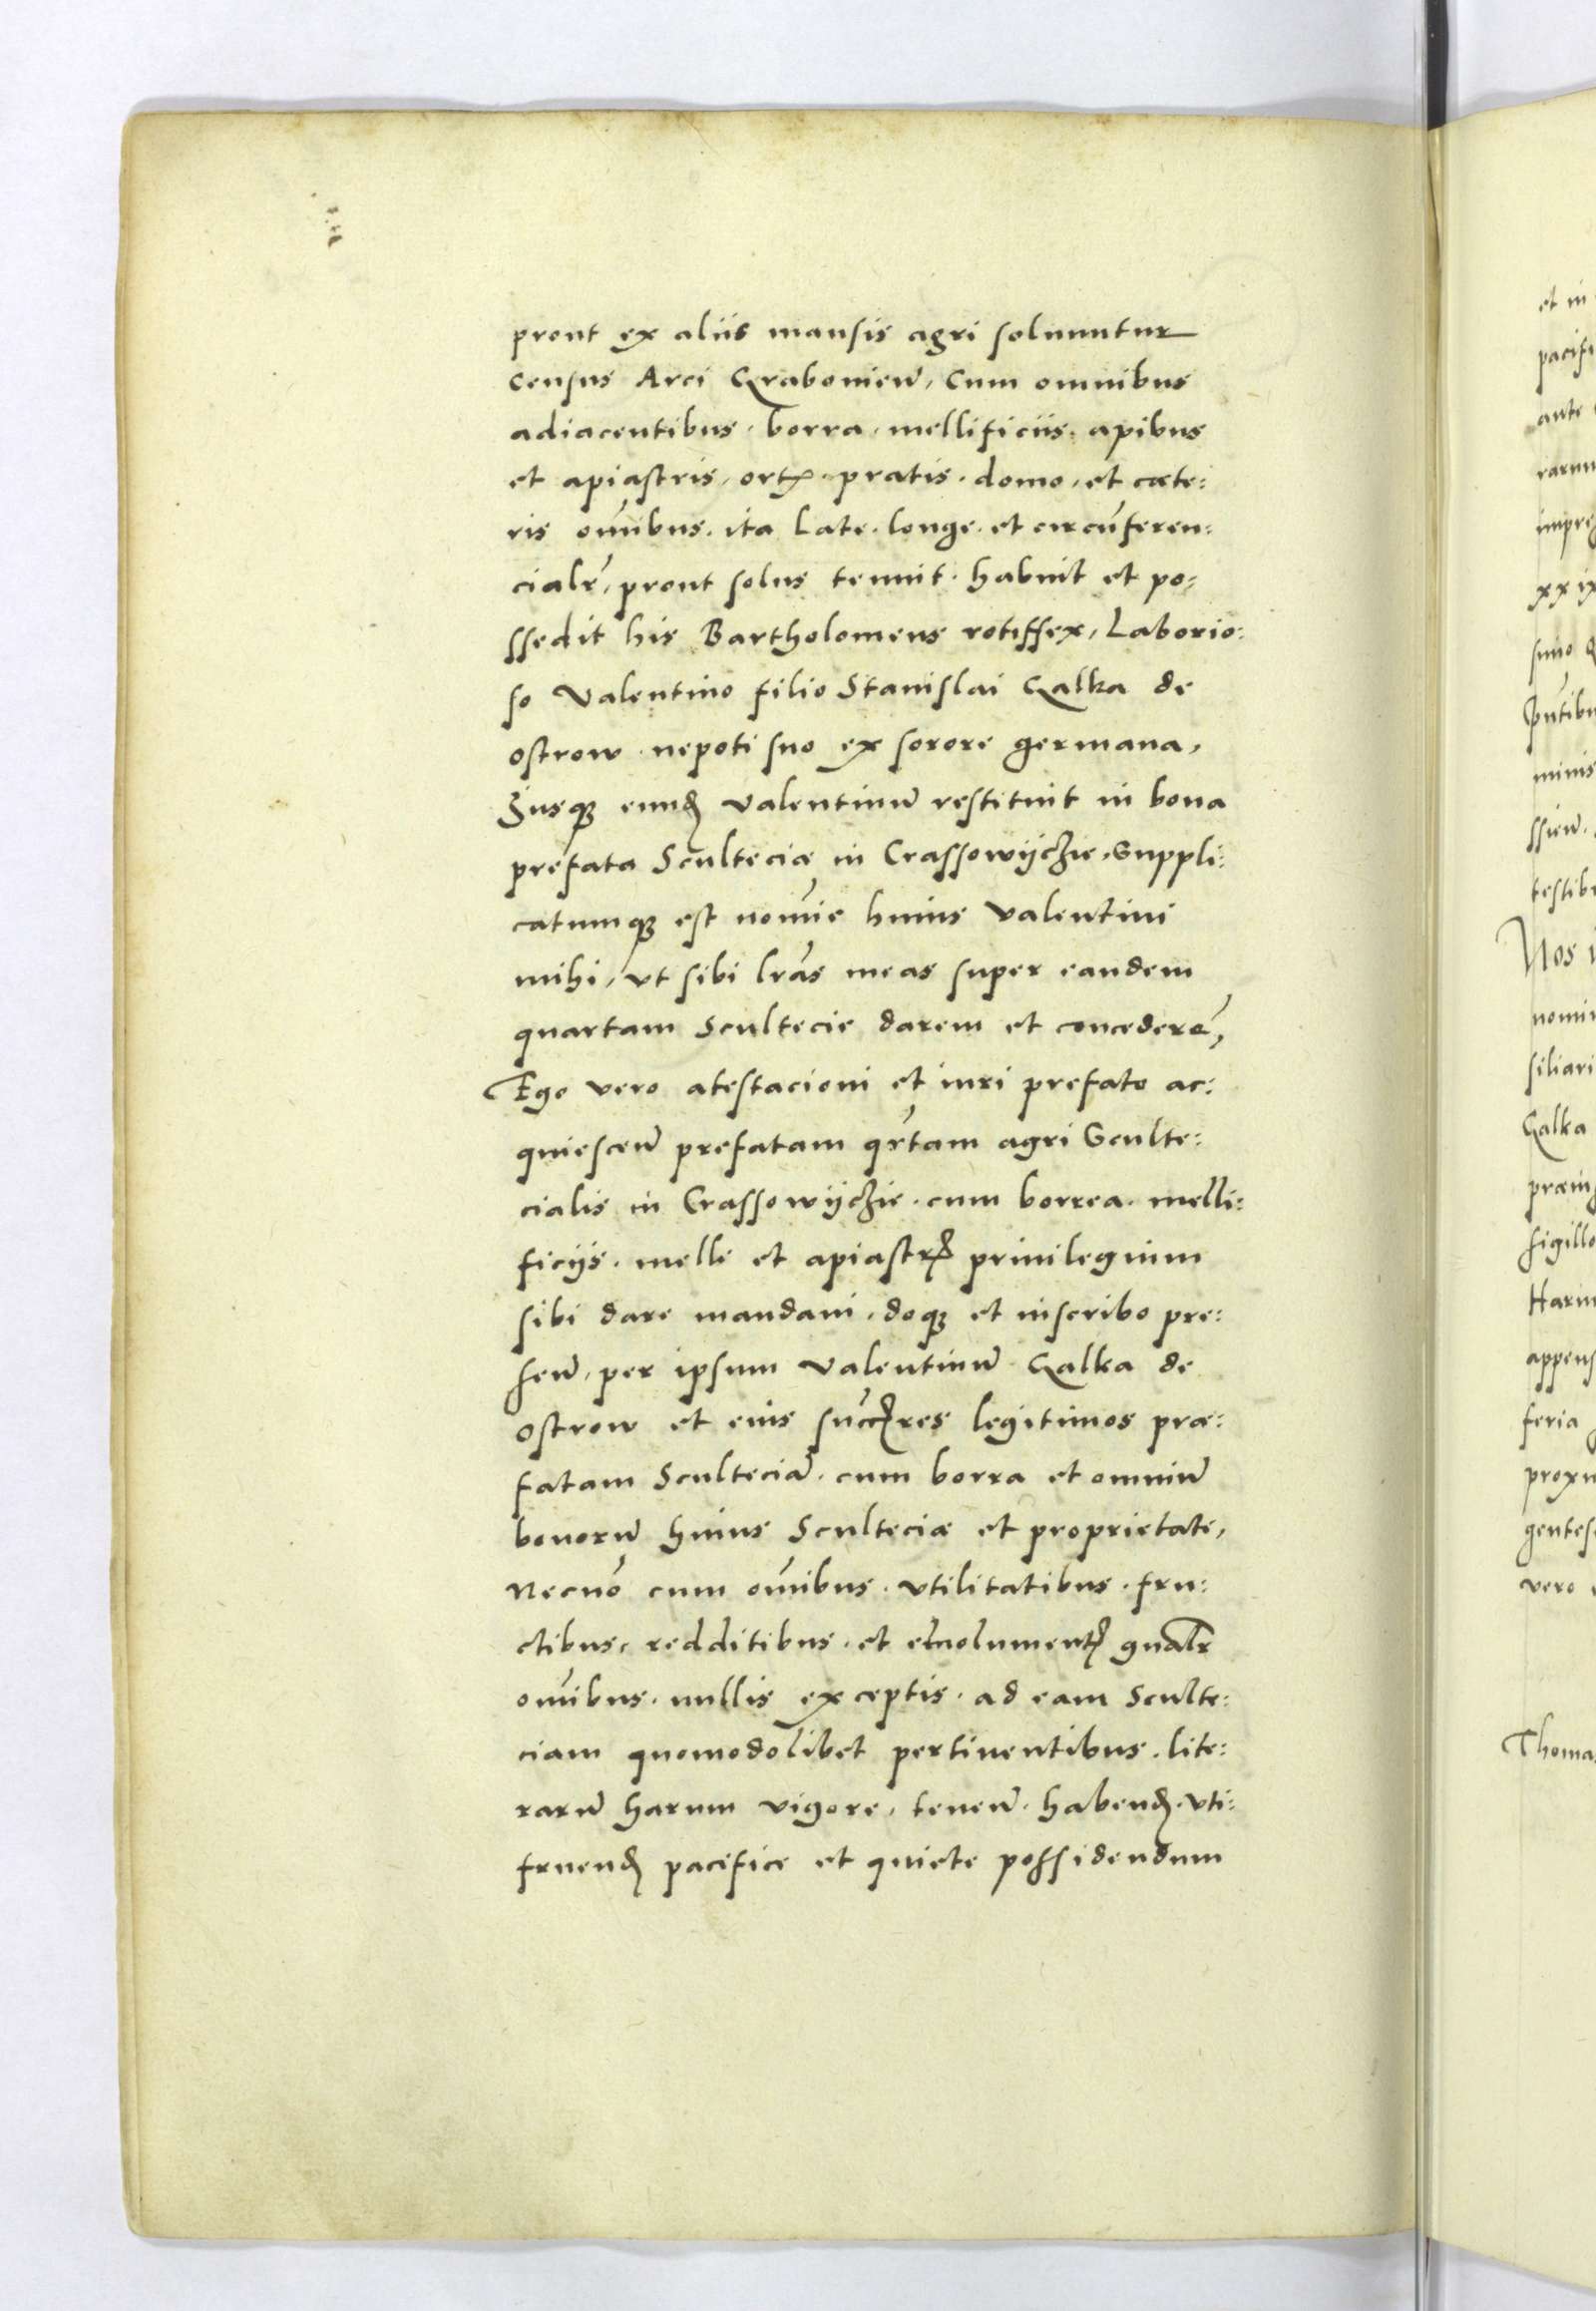 prout ex aliis mansis agri soluuntur
census Arci Grabonieñ, cum omnibus
adiacentibus. borra. mellificiis. apibus
et apiastris, ortꝭ. pratis. domo, et cæte:
ris om̃ibus. ita late. longe. et circũferen:
cialr̃, prout solus tenuit. habuit et po:
ssedit his Bartholomeus rotiffex, Laborio:
so Valentino filio Stanislai Galka de
ostrow. nepoti suo ex sorore germana,
Iusqꝫ eundꝭ Valentinũ restituit in bona
prefata Sculteciæ in Crassowÿczie. Suppli:
catumqꝫ est nomĩe huius Valentini
mihi, vt sibi lr̃as meas super eandem
quartam Scultecie darem et concederẽ,
Ego vero atestacioni et iuri prefato ac:
quiesceñ prefatam qr̃tam agri Sculte:
cialis in Crassowÿczie. cum borrea. melli:
ficÿs. melle et apiastrꝭ priuilegium
sibi dare mandaui. doqꝫ et inscribo pre:
señ, per ipsum Valentinũ Galka de
ostrow et eius succꝭres legitimos præ:
fatam Sculteciã. cum borra et omniũ
bonorũ huius Sculteciæ et proprietate,
Necnõ cum om̃ibus. vtilitatibus. fru:
ctibus, redditibus. et emolumentꝭ gnalr̃
om̃ibus. nullis exceptis. ad eam Sculte:
ciam quomodolibet pertinentibus. lite:
rarũ harum vigore, teneñ. habendꝭ. vti:
fruendꝭ pacifice et quiete possidendum
et in
pacifi
ante
rarum
xx ix
minis
testib
Nos
siliari
Galka
sigillo
Harum
appens
feria
gentes
vero
Thoma